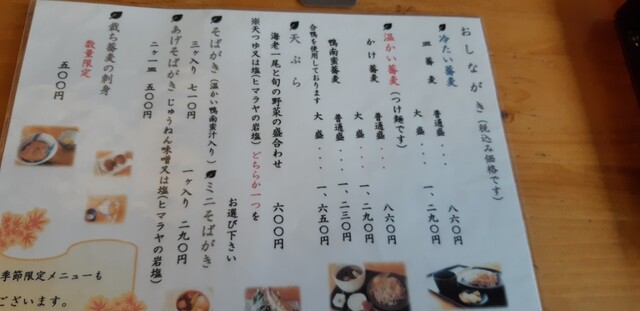 おしながき(税込み価格です)
冷たい蕎麦
皿蕎麦 普通盛・・・ 八六〇円
大盛・・・ 一、二九〇円
温かい蕎麦(つけ麺です)
かけ蕎麦 普通盛・・・ 八六〇円
大盛・・・ 一、二九〇円
鴨南蛮蕎麦 普通盛・・・ 一、二三〇円
合鴨を使用しております 大盛・・・ 一、六五〇円
天ぷら
海老一尾と旬の野菜の盛合わせ 六〇〇円
※天つゆ又は塩(ヒマラヤの岩塩)どちらか一つを
お選び下さい
そばがき(温かい鴨南蛮汁入り)
三ヶ入り 七一〇円
ミニそばがき
一ヶ入り 二九〇円
あげそばがき じゅうねん味噌又は塩(ヒマラヤの岩塩)
二ヶ一皿 五〇〇円
裁ち蕎麦の刺身
数量限定
五〇〇円
季節限定メニューも
ございます。